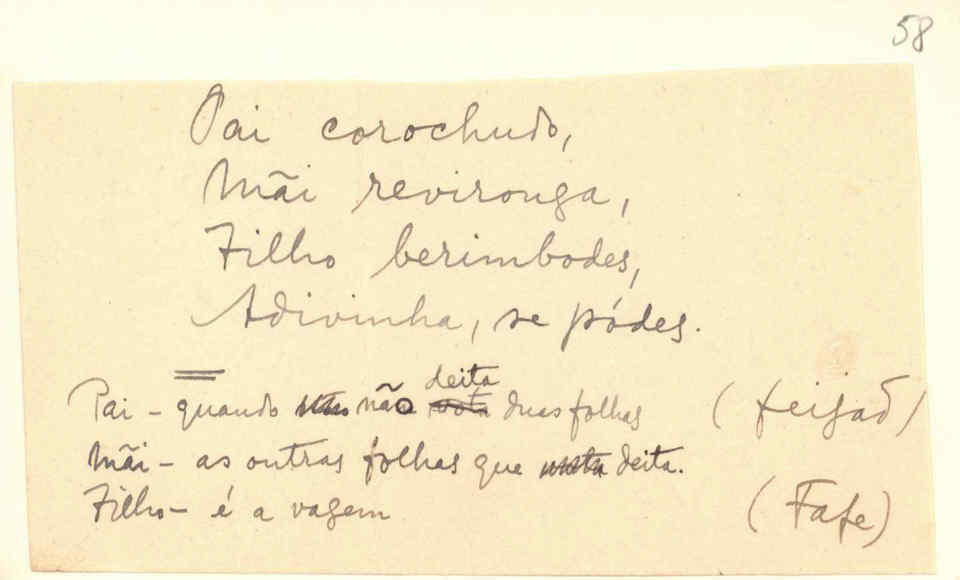 58
Pai corochudo,
Mãi revironga,
Filho berimbodes,
Adivinha, se pódes.
deita
Pai - quando não bota duas folhas (feijão)
Mãi - as outras folhas que deita.
Filho - é a vagem
(Fafe)